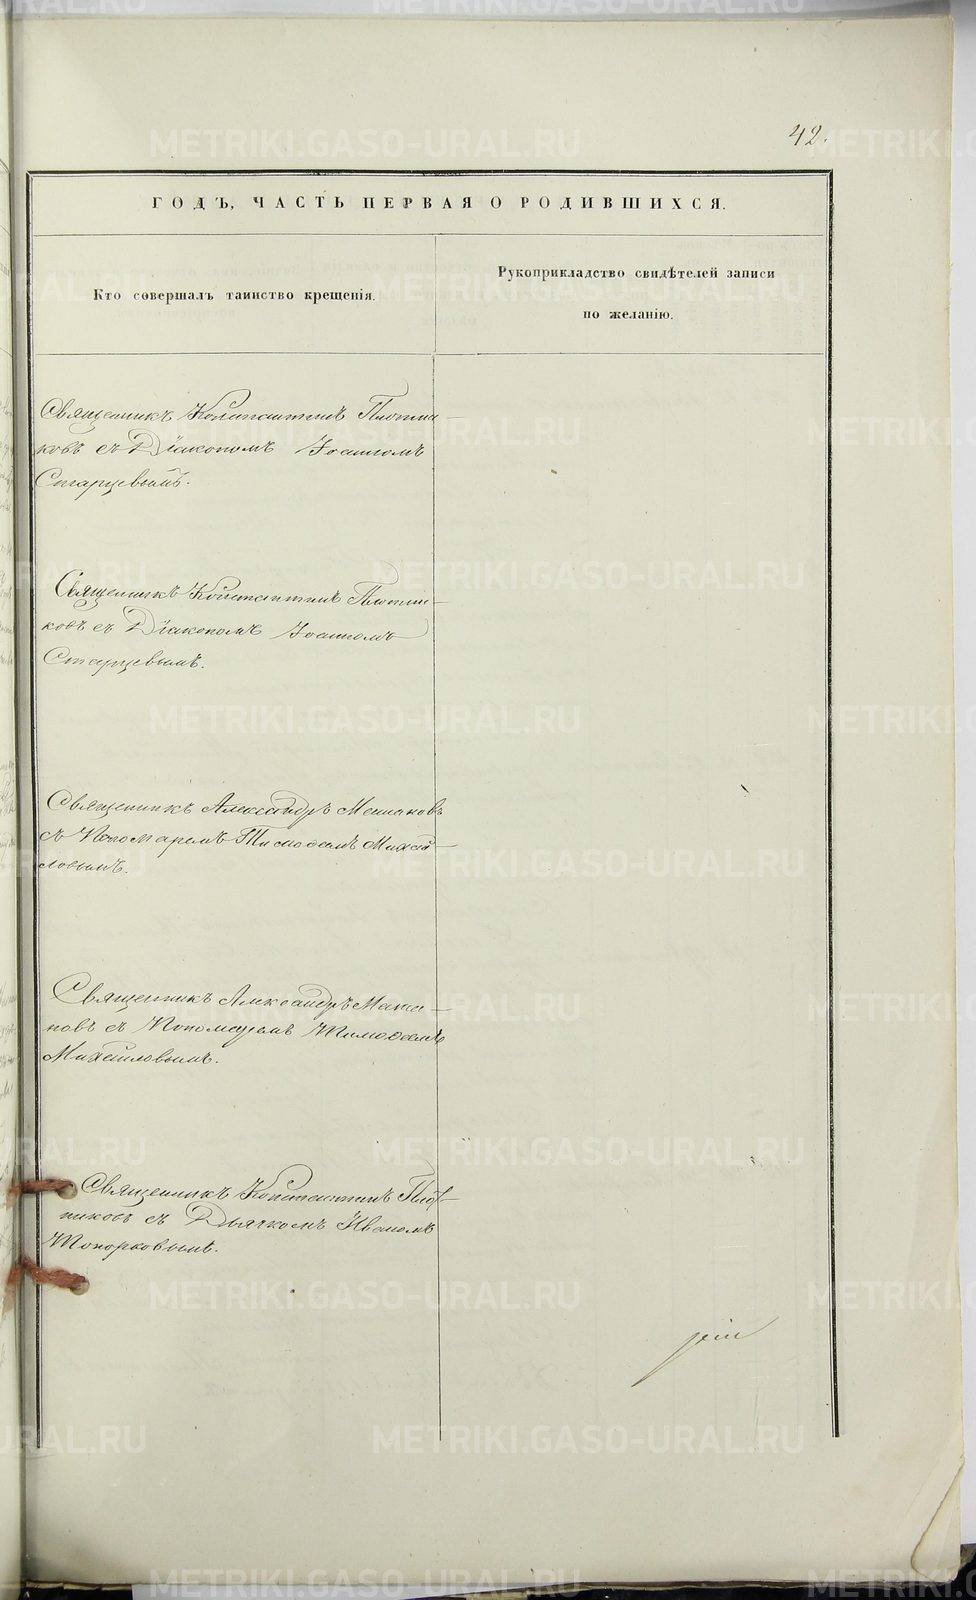 42.
ГОДЪ, ЧАСТЬ ПЕРВАЯ О РОДИВШИХСЯ.
Кто совершалъ таинство крещенія.
Рукоприкладство свидѣтелей записи
по желанію.
Священникъ Константинъ Плотни-
ковъ съ Діакономъ Іоанномъ
Старцевымъ.
Священникъ Константинъ Плотни-
ковъ съ Діакономъ Іоанномъ
Старцевымъ.
Священникъ Александръ
съ Пономаремъ Тимофеемъ Михай-
ловымъ.
Священникъ Александръ
новъ съ Пономаремъ Тимофеемъ
Михайловымъ.
Священникъ Константинъ Плот-
никовъ съ Дьячкомъ Иваномъ
Топорковымъ.
METRIKI.GASO-URAL.RU